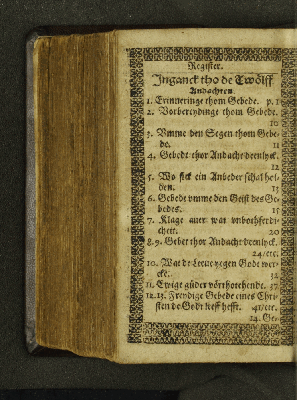 Register.
Inganck tho de Twölff
Andachten
1. Erinneringe thom Gebede. p. 1
2. Vorbereydinge thom Gebede.
10
3. Vmme den Segen thom Gebe-
de. 11
4. Gebedt thor Andacht denlyck.
12
5. Wo sick ein Anbeder schal hol-
den. 13
6. Gebede vmme den Geist des Ge-
bedes. 15
7. Klage auer war
cheit. 20
8. 9. Gebet thor Andacht denlyck.
24/etc.
10. Wat de Leeue yegen Gode wer-
cke. 32
11. Ewigt güder vörthotehende. 37
12. 13. Frendige Gebede eines Chri-
sten de Godt leeff hefft. 41/etc.
14. Ge-